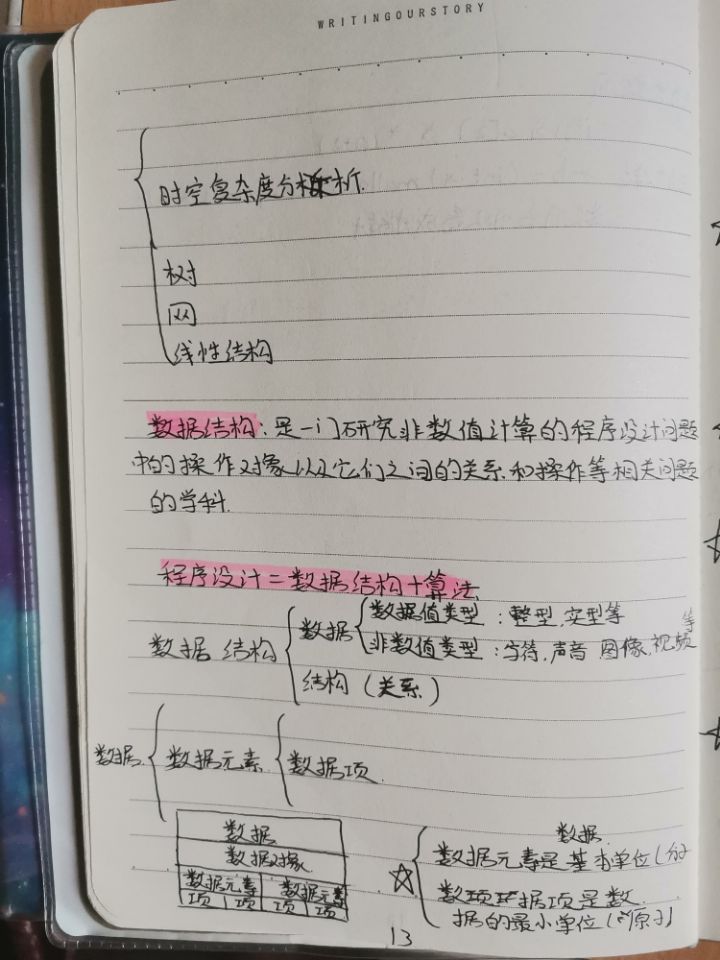 WRITINGOURSTORY
时空复杂度分析.
树
网
线性结构
数据结构：是一门研究非数值计算的程序设计问题
中的操作对象以及它们之间的关系和操作等相关问题
的学科.
程序设计=数据结构+算法
数据结构
数据
数据值类型：整型.实型等
非数值类型：字符.声音 图像.视频等
结构（关系）
数据
数据元素
数据项
数据
数据对象
数据元素 数据元素
项 项 项 项
☆
数据
数据元素是基本单位(分子
数据项是数
据的最小单位(原子)
13